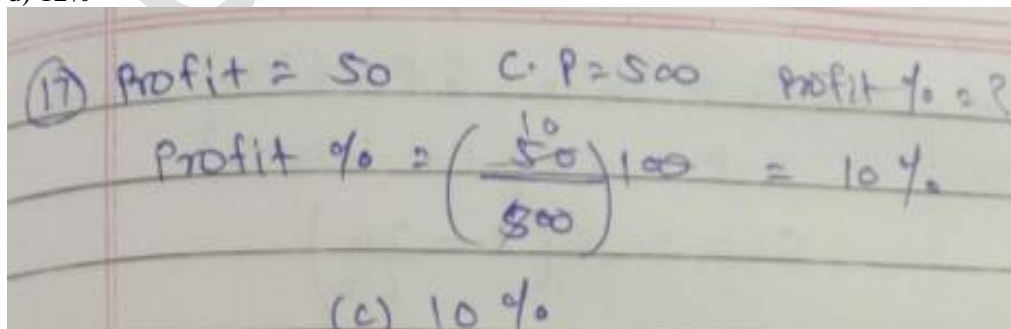 d) 12%
(17) Profit = 50 C.P = 500 Profit % = ?
Profit % = (50/500) 100 = 10 %
10
(c) 10 %